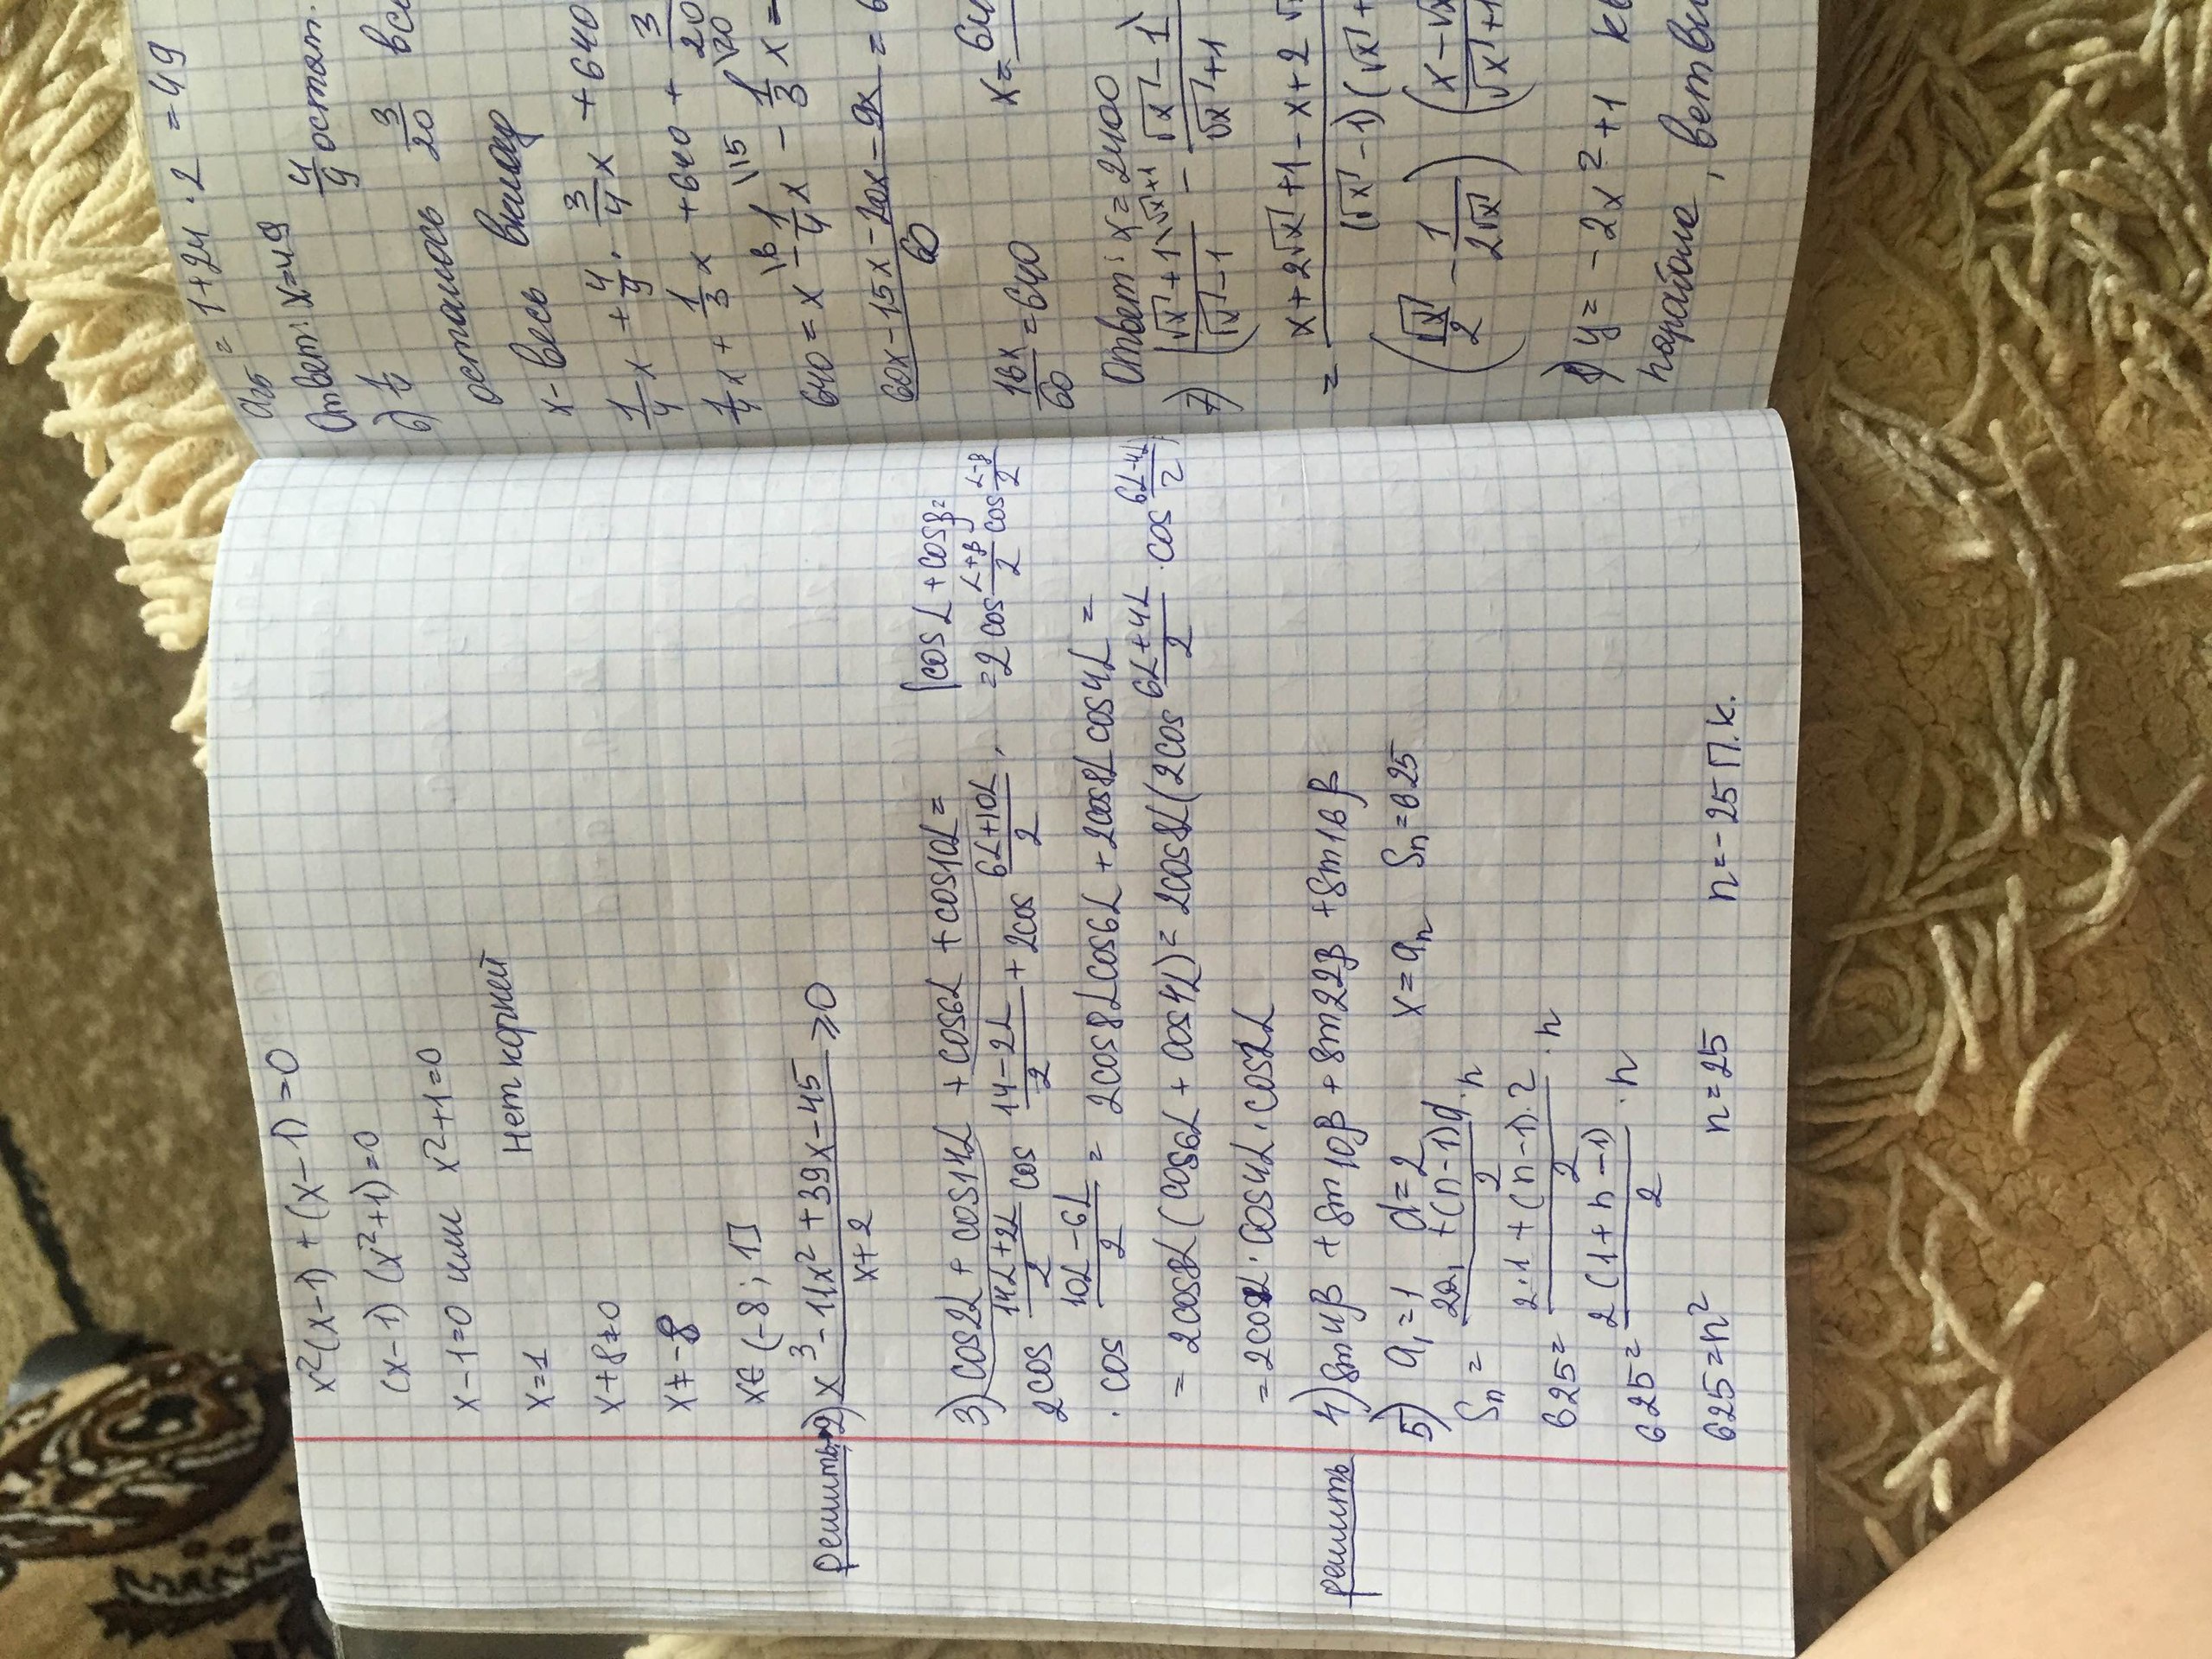 x²(x-1)+(x-1)=0
(x-1)(x²+1)=0
x-1=0 или x²+1=0
x=1 Нет корней
x+8≠0
x≠-8
x∈(-8;1]
решить 2) (x³-11x²+39x-45)/(x+2) ⩾0
3) cos2α+cos14α+cos6α+cos10α= [cosα+cosβ=
2cos (14α+2α)/2 cos (14-2α)/2 + 2cos (6α+10α)/2 · =2cos (α+β)/2 cos (α-β)/2
·cos (10α-6α)/2 = 2cos8αcos6α+2cos8αcos4α=
=2cos8α(cos6α+cos4α)=2cos8α(2cos (6α+4α)/2 ·cos (6α-4α)/2
=2cos8α·cos4α·cos2α
решить 4) sin4β+sin10β+sin22β+sin16β
5) a₁=1 d=2 x=aₙ Sₙ=625
Sₙ= (2a₁+(n-1)d)/2 ·n
625= (2·1+(n-1)·2)/2 ·n
625= 2(1+n-1)/2 ·n
625=n² n=25 n=-25 П.к.
a₂₅=1+24·2=49
Ответ: x=49
6) 4/9 остат.
осталось 3/20
x-весь вклад
1/4 x + 4/9 · 3/4 x +640
1/4 x + 1/3 x +640+ 3/20
640=x- 1/4 x - 1/3 x =
(60x-15x-20x-9x)/60 =6
16x/60 =640 x=
Ответ: x=2400
7) ( (√x+1)/(√x-1) \√x+1 - (√x-1)/(√x+1)
= (x+2√x+1-x+2√x)/((√x-1)(√x+
(√x/2 - 1/(2√x)) (
8) y=-2x²+1
парабола, ветви